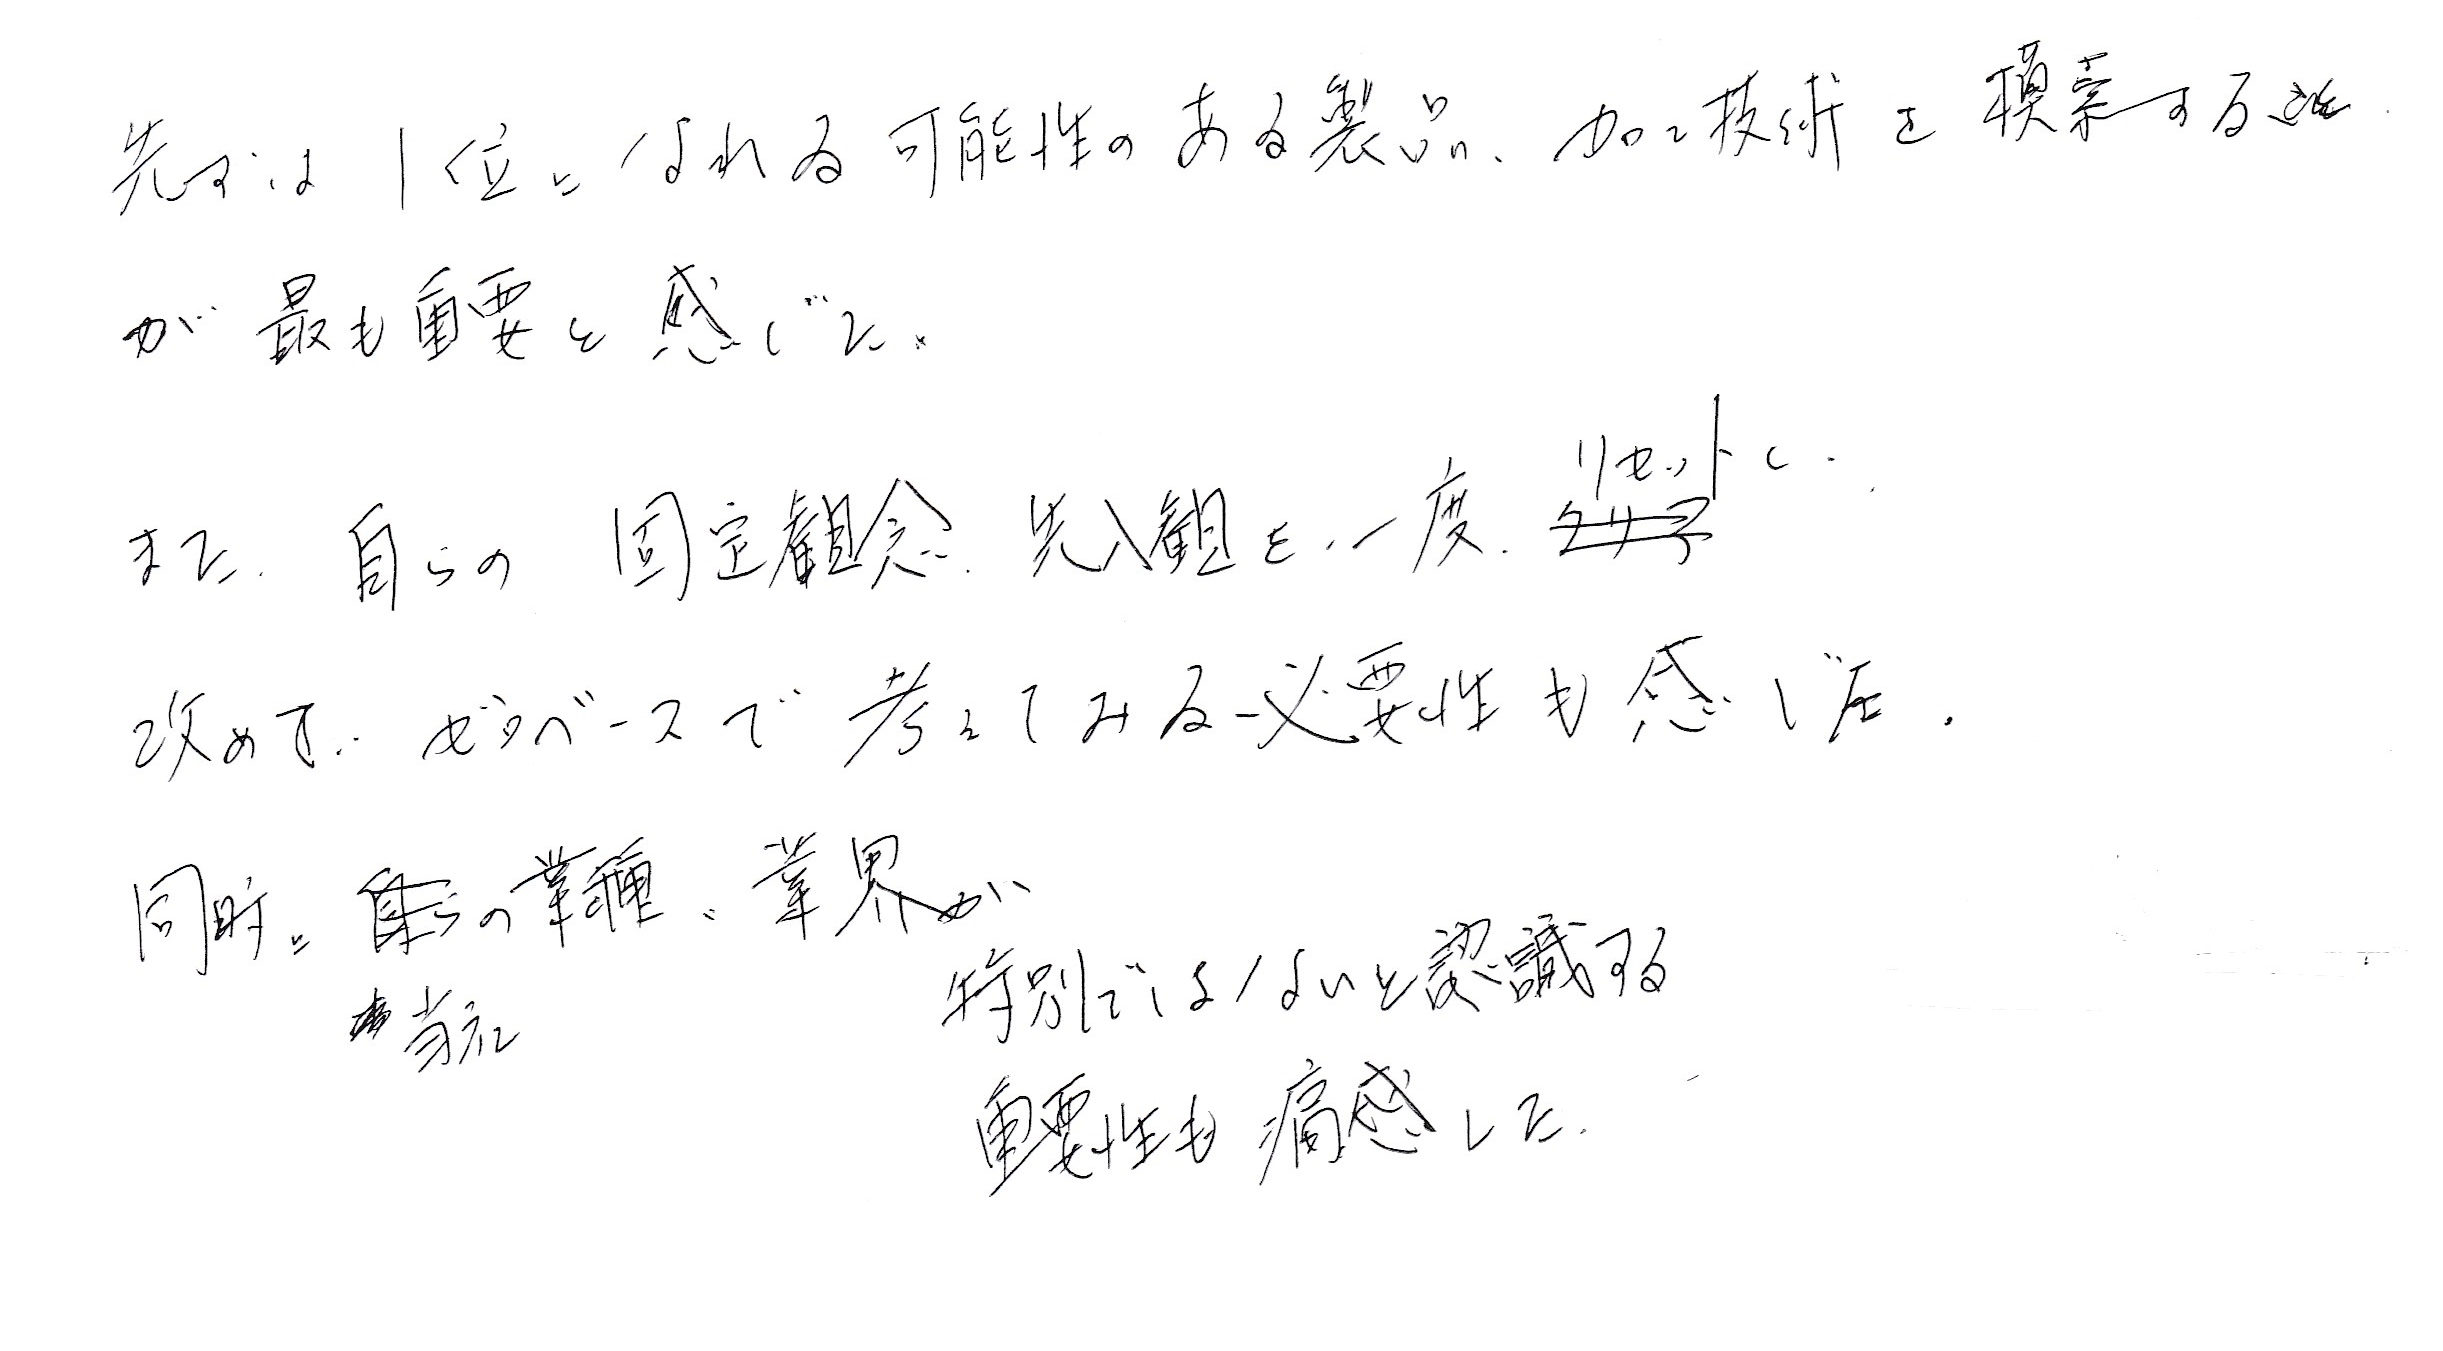 先ずは1位になれる可能性のある製品、加工技術を模索する
が最も重要と感じた。
また、自らの固定観念、先入観を、一度、リセットし、
改めて、ゼロベースで考えてみる必要性も感じた。
同時に自らの業種、業界が
当社
特別ではないと認識する
重要性も痛感した。